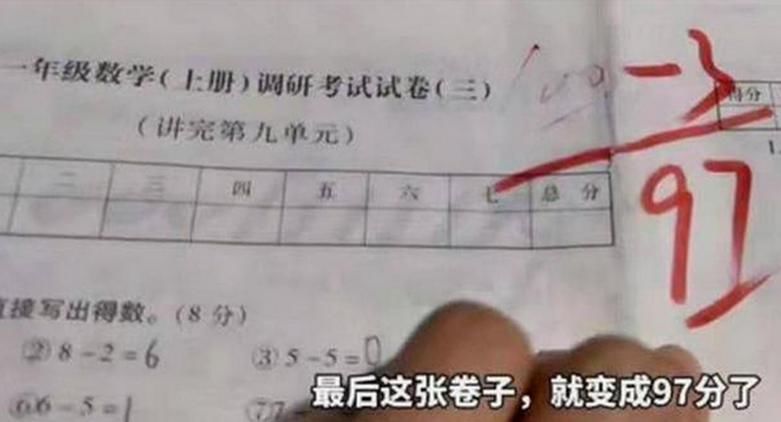 一年级数学(上册)调研考试试卷(三)
-3
得分
(讲完第九单元)
1.
97
二 三 四 五 六 七 总分
直接写出得数。(8分)
②8-2=6 ③5-5=0
⑥6-5=1 ⑦7-
最后这张卷子，就变成97分了